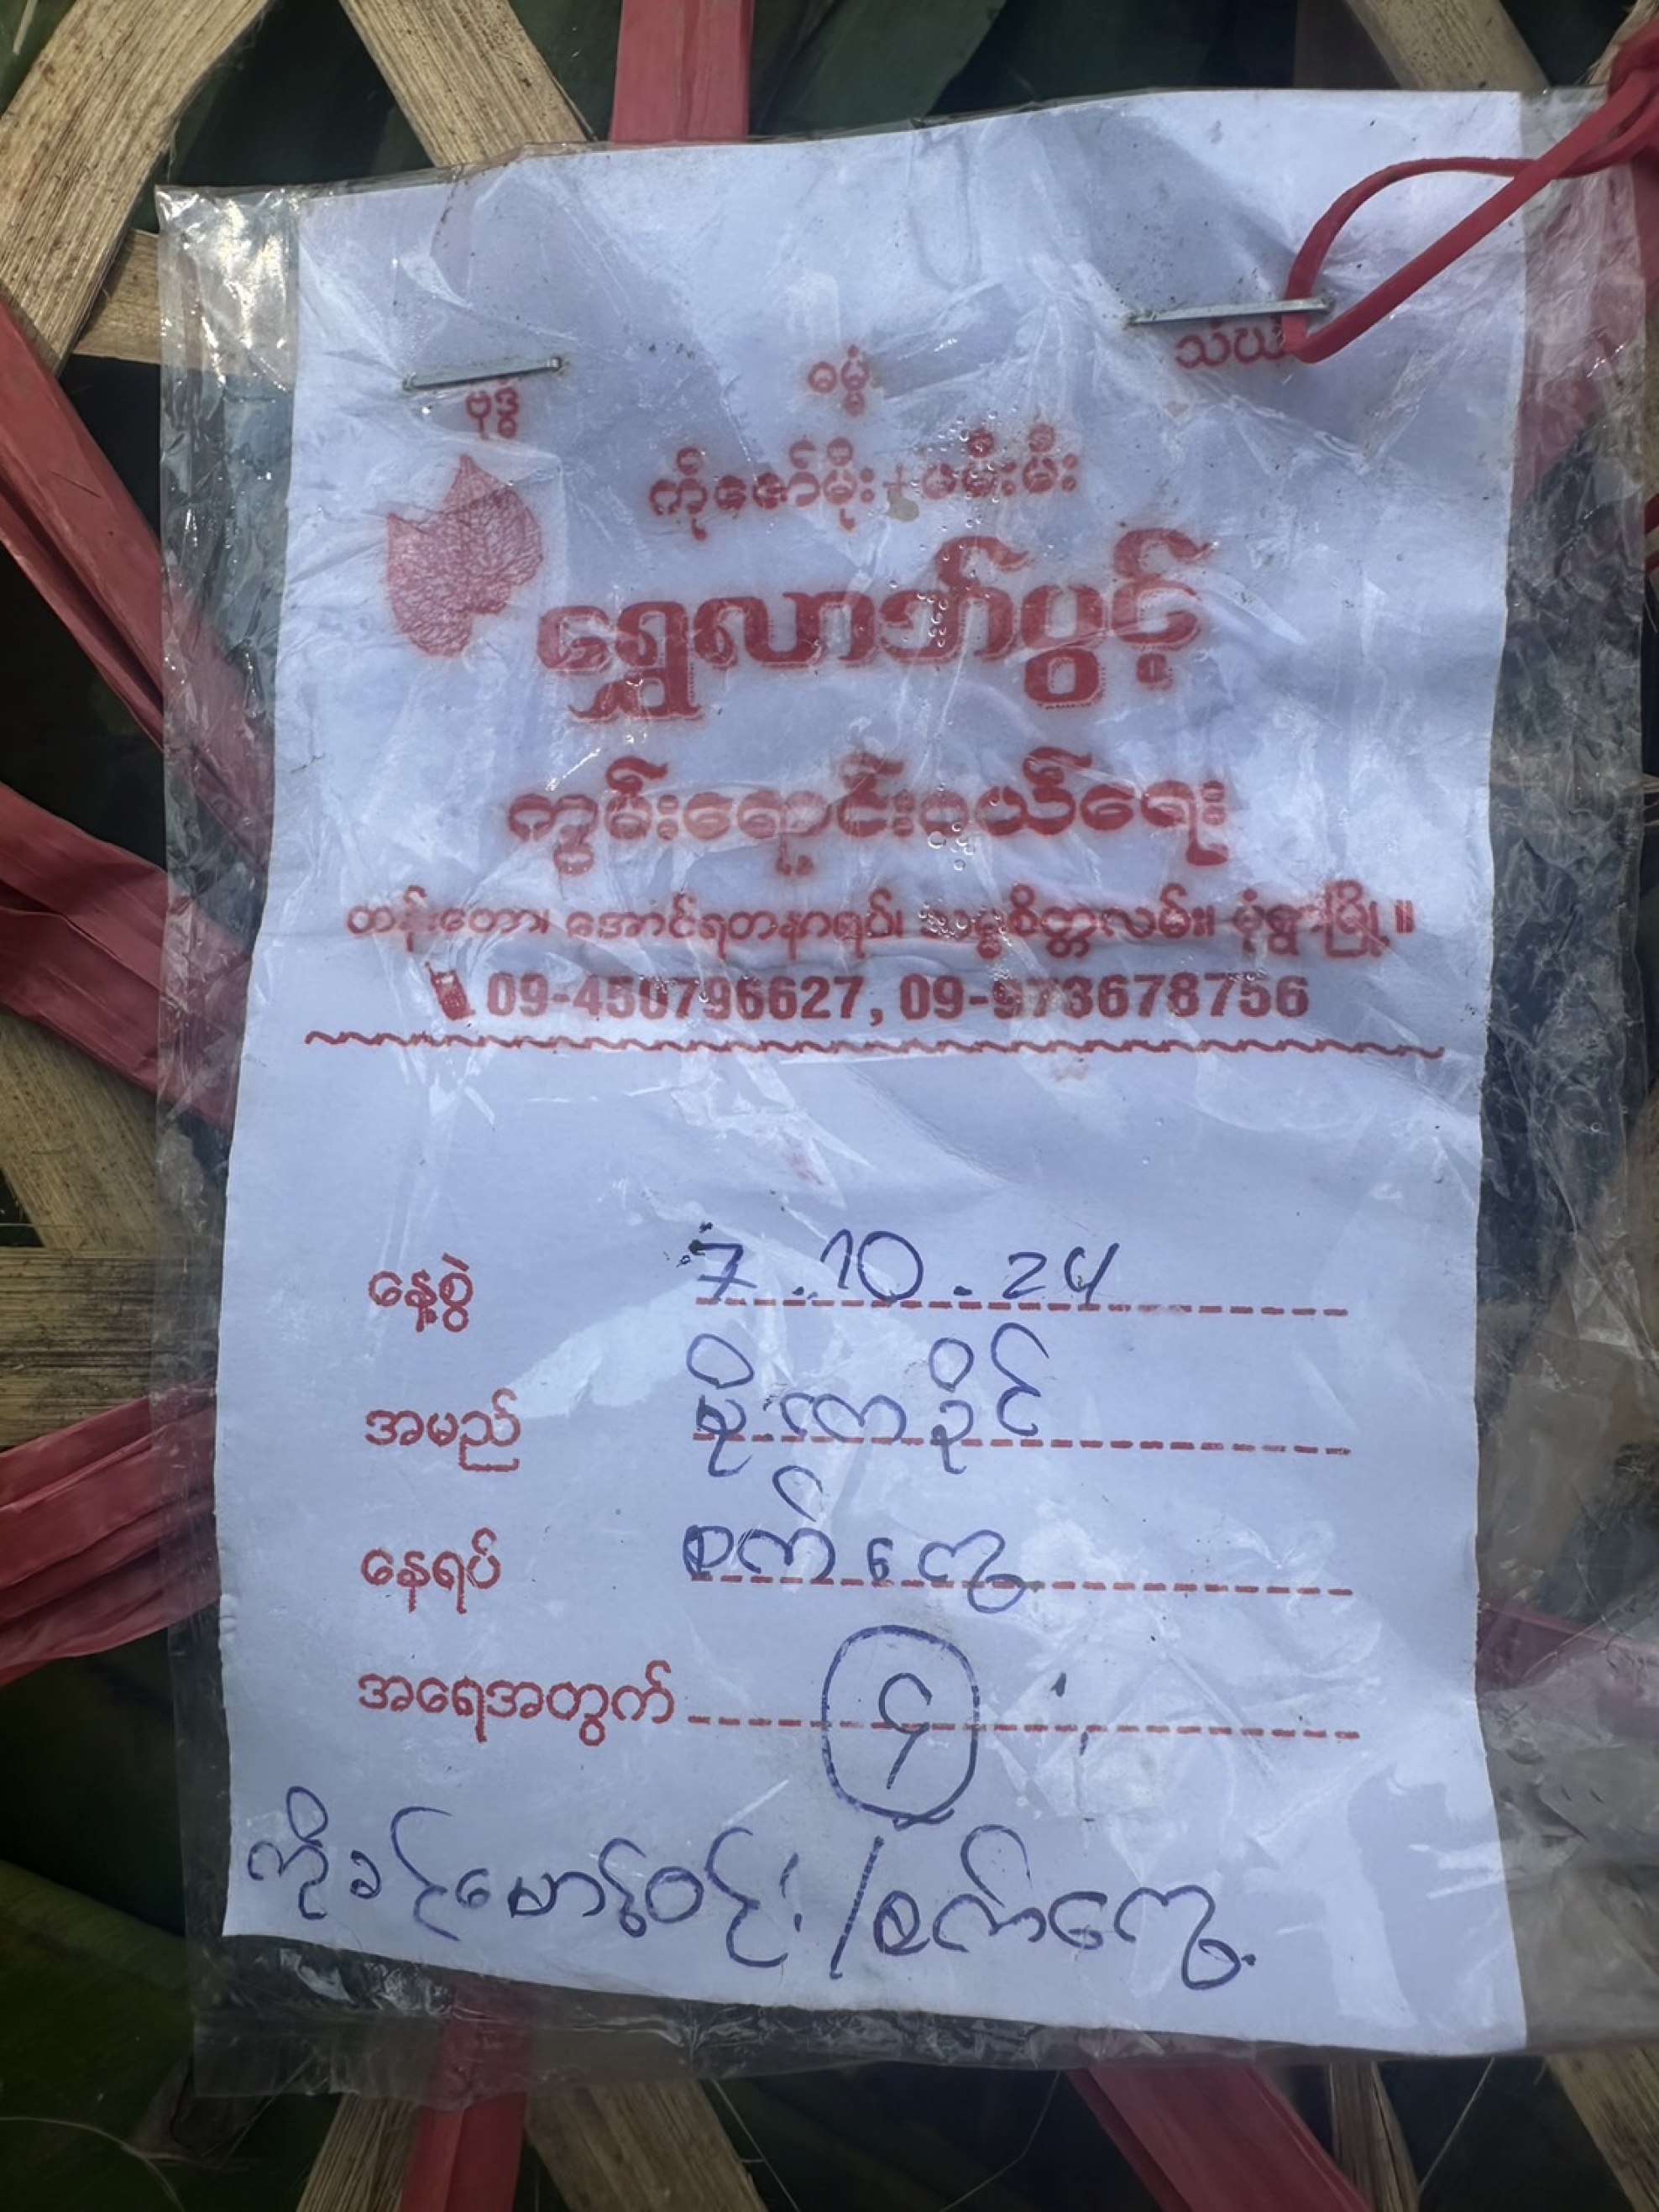 ဗုဒ္ဓ ဓမ္မံ သံဃံ
ကိုဇော်မိုး+မမီးမီး
ရွှေလာဘ်ပွင့်
ကွမ်းရောင်းဝယ်ရေး
တန်းတော၊ အောင်ရတနာရပ်၊ သမ္မစိတ္တလမ်း၊ မုံရွာမြို့။
09-450796627, 09-973678756
နေ့စွဲ 7.10.24
အမည် စိုးကာခိုင်
နေရပ် စက်ကွေ့
အရေအတွက် ၄
ကိုခင်မောင်ဝင်း/စက်ကွေ့